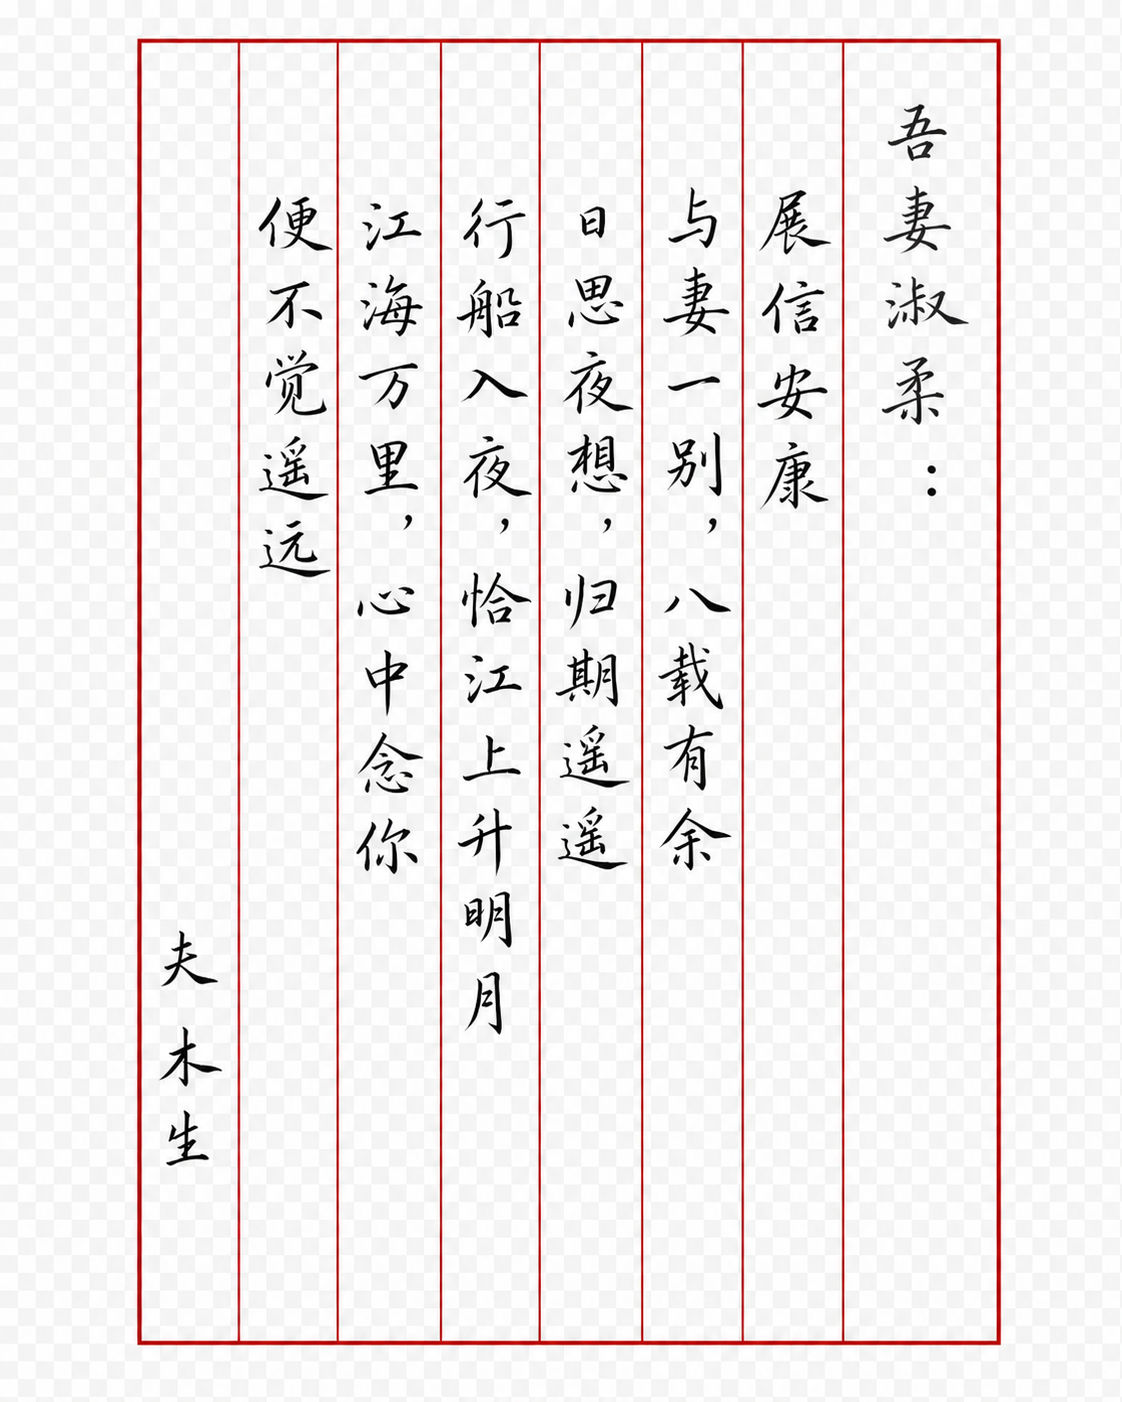 吾妻淑柔：
展信安康
与妻一别，八载有余
日思夜想，归期遥遥
行船入夜，恰江上升明月
江海万里，心中念你
便不觉遥远
夫木生